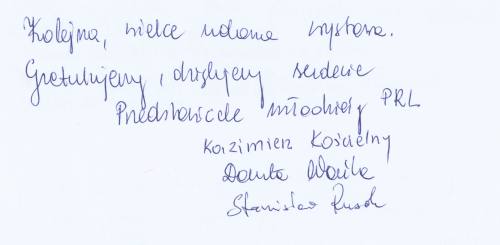 Kolejna, wielce udana wystawa.
Gratulujemy, dziękujemy serdecznie
Przedstawiciele młodzieży PRL
Kazimierz Kościelny
Danuta
Stanisław